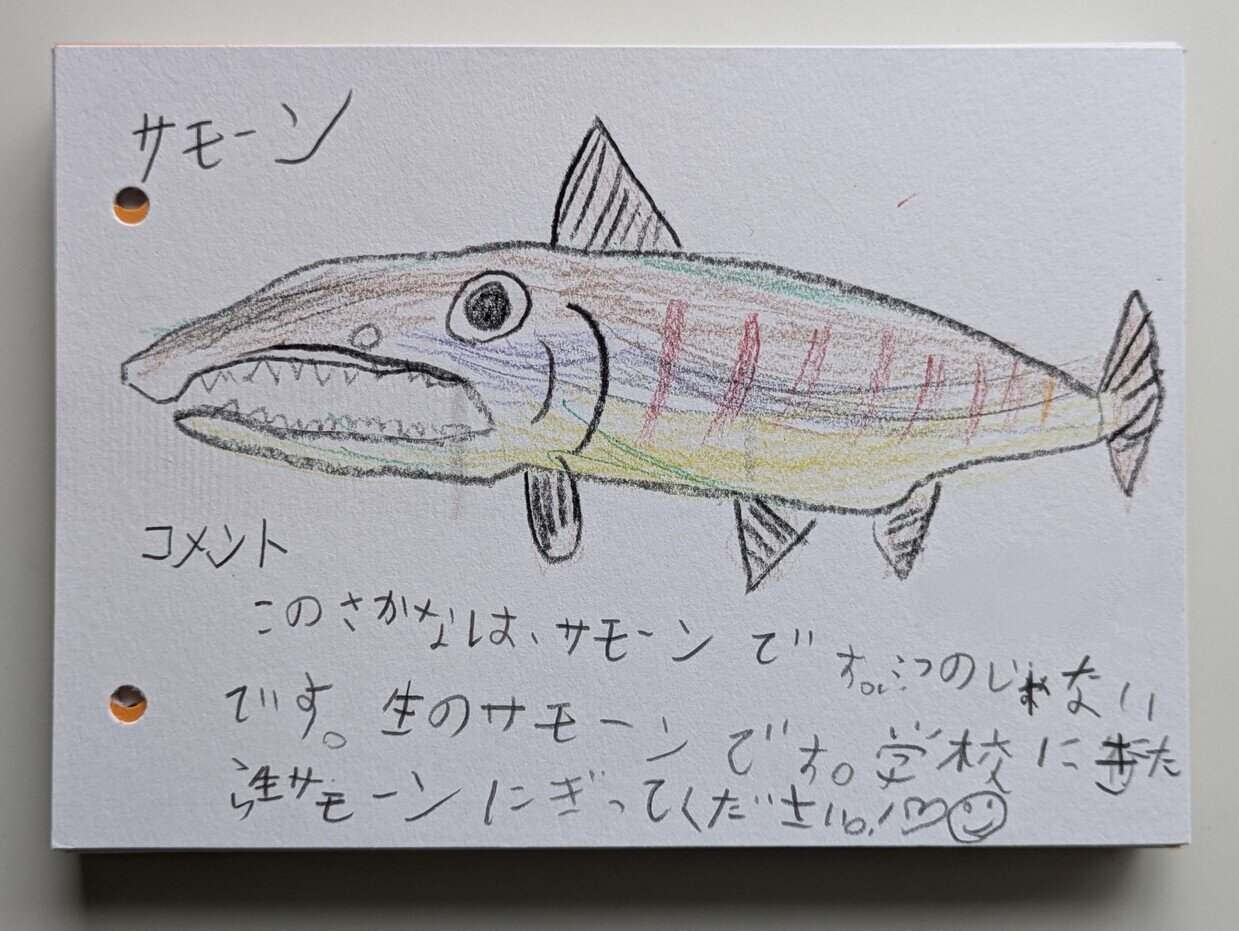 サモーン
コメント
このさかなは、サモーンです。ふつのじゃない
です。生のサモーンです。学校に来た
ら生サモーンにぎってください。!